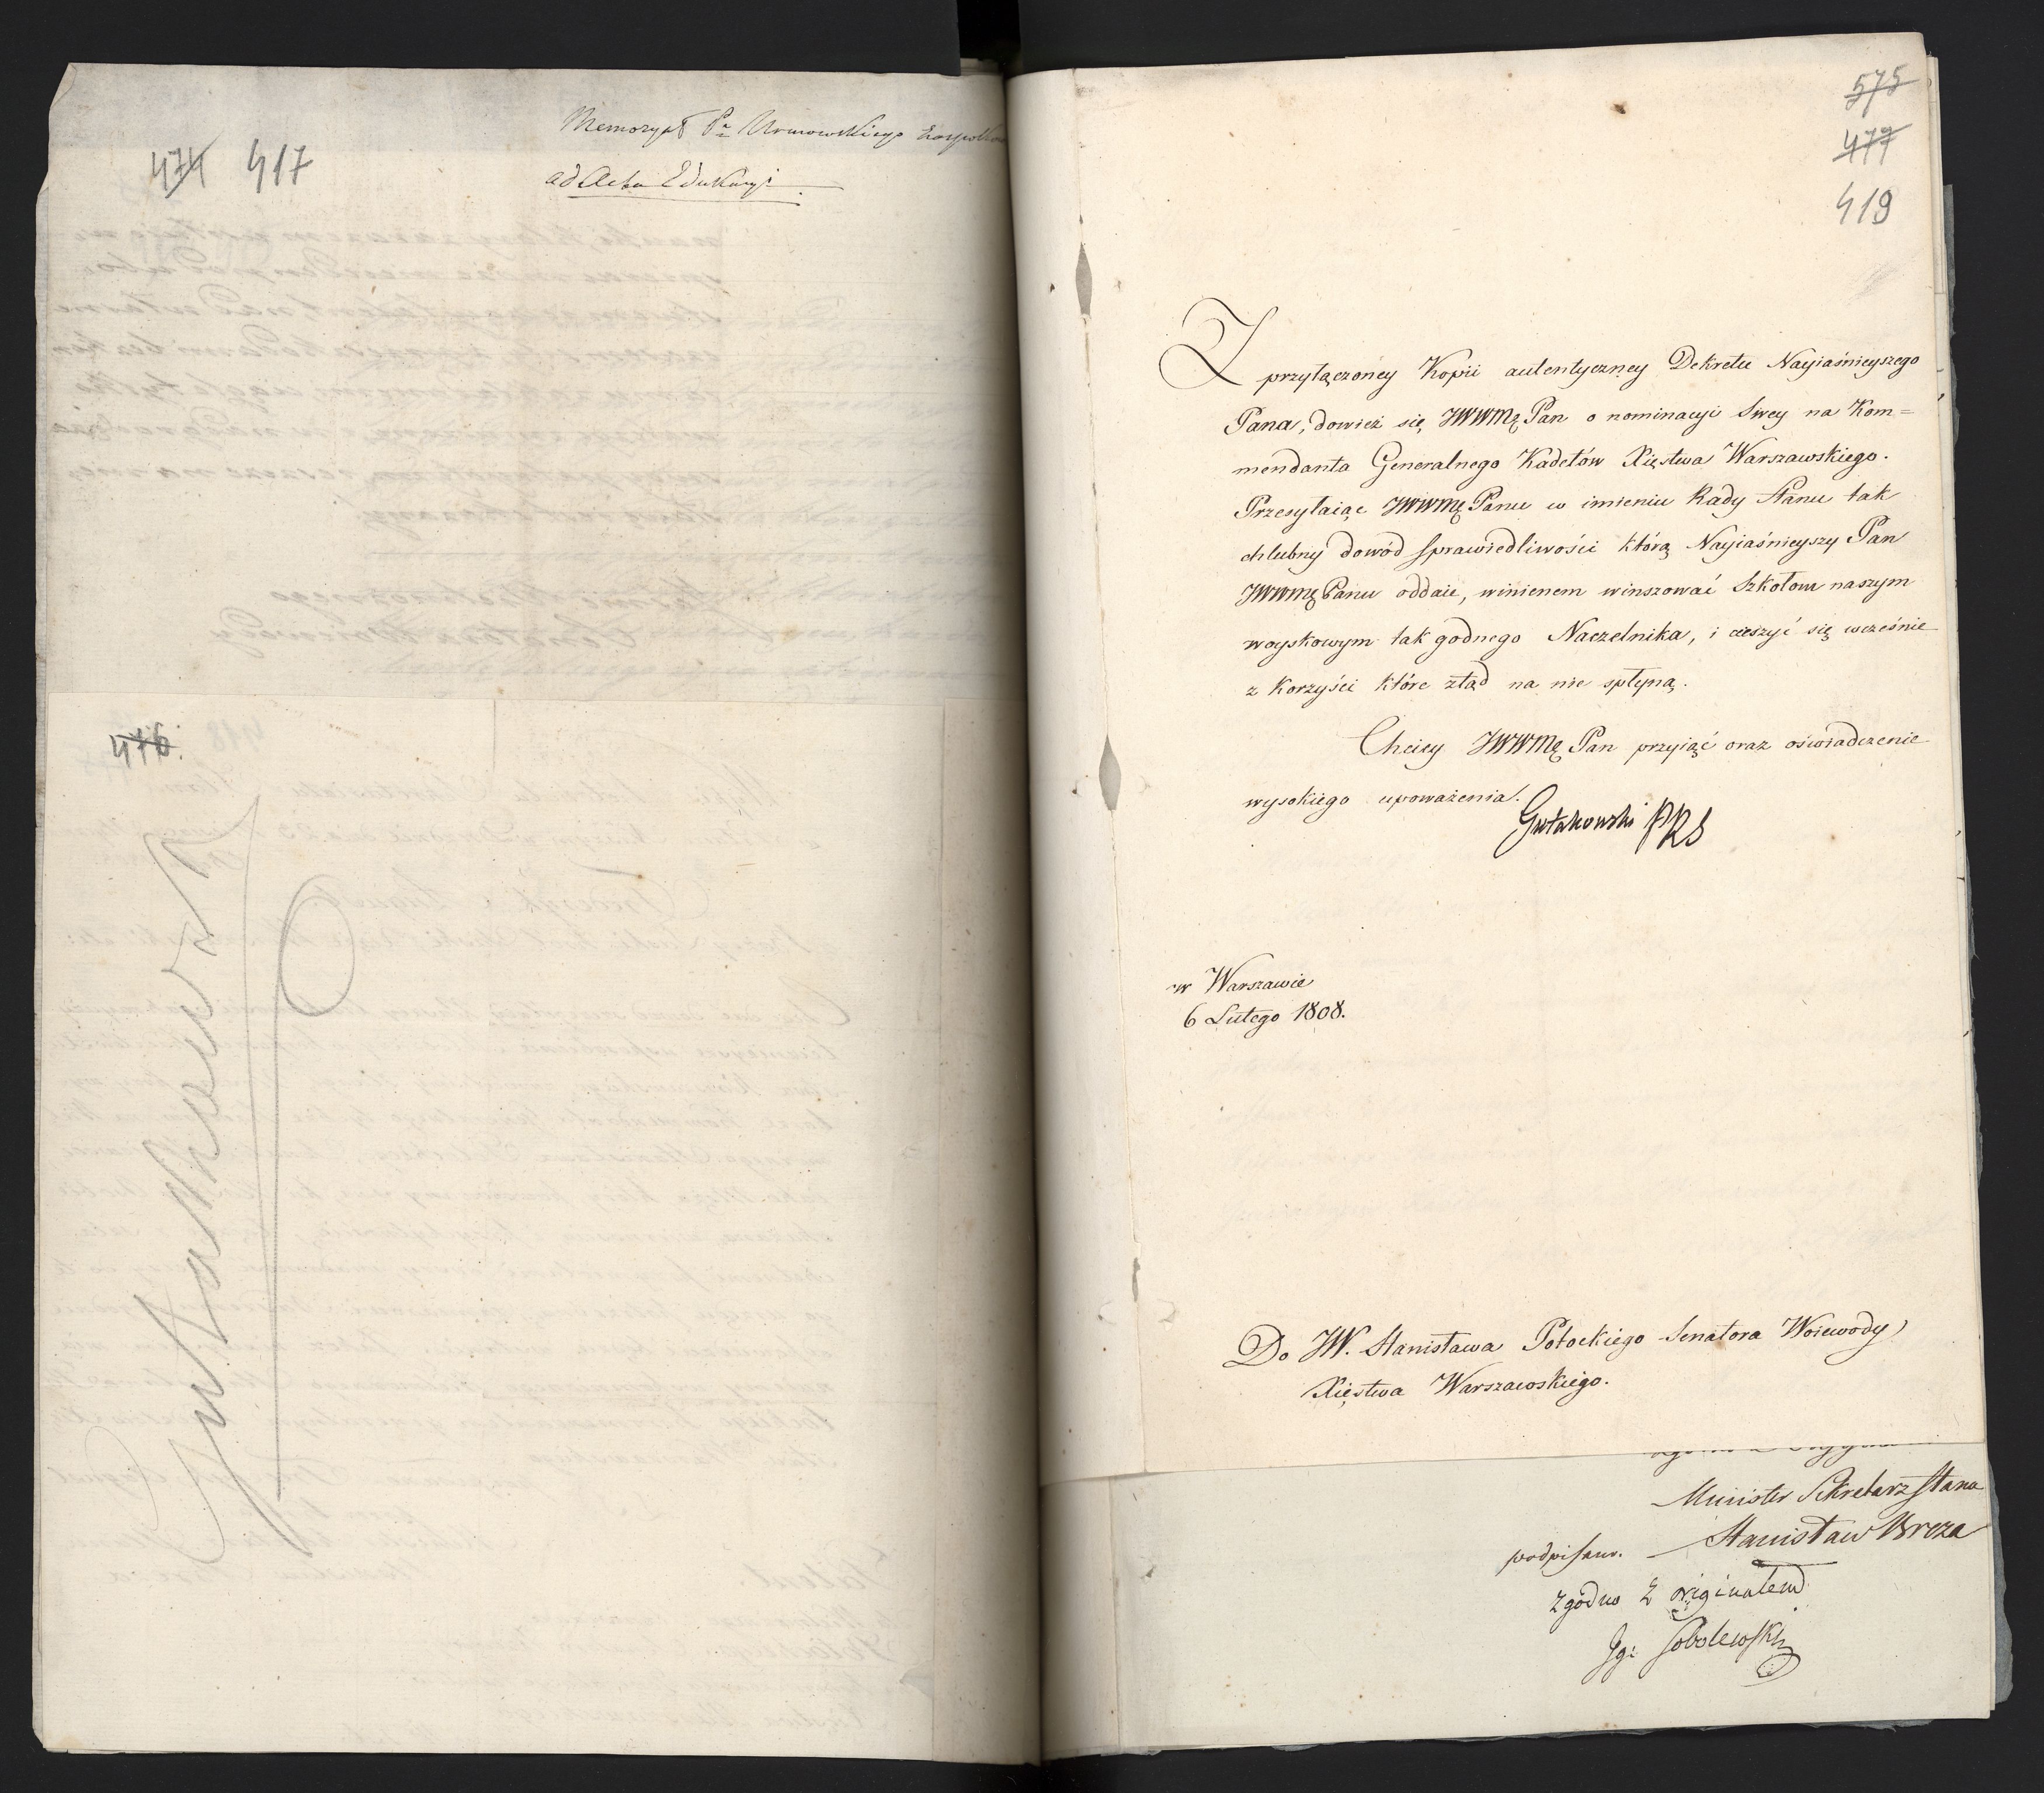 474 417
Memoryał Pa
ad Acta Edukacyi
476.
Gutakowski
575
477
419
Z przyłączoney Kopii autentyczney Dekretu Nayiaśnieyszego
Pana, dowiesz się JWWMę Pan o nominacyi Swey na Kom=
mendanta Generalnego Kadetów Xięstwa Warszawskiego.
Przesyłaiąc JWWMę Panu w imieniu Rady Stanu tak
chlubny dowód sprawiedliwości którą Nayiaśnieyszy Pan
JWWMę Panu oddaie, winienem winszować Szkołom naszym
woyskowym tak godnego Naczelnika, i cieszyć się wcześnie
z korzyści które ztąd na nie spłyną.
Chciey JWWMę Pan przyiąć oraz oświadczenie
wysokiego upoważenia.
Gutakowski PRS
w Warszawie
6 Lutego 1808.
Do JW. Stanisława Potockiego Senatora Woiewody
Xięstwa Warszawskiego.
Minister Sekretarz Stanu
podpisano. Stanisław Breza
zgodno z originałem
Ig: Sobolewski